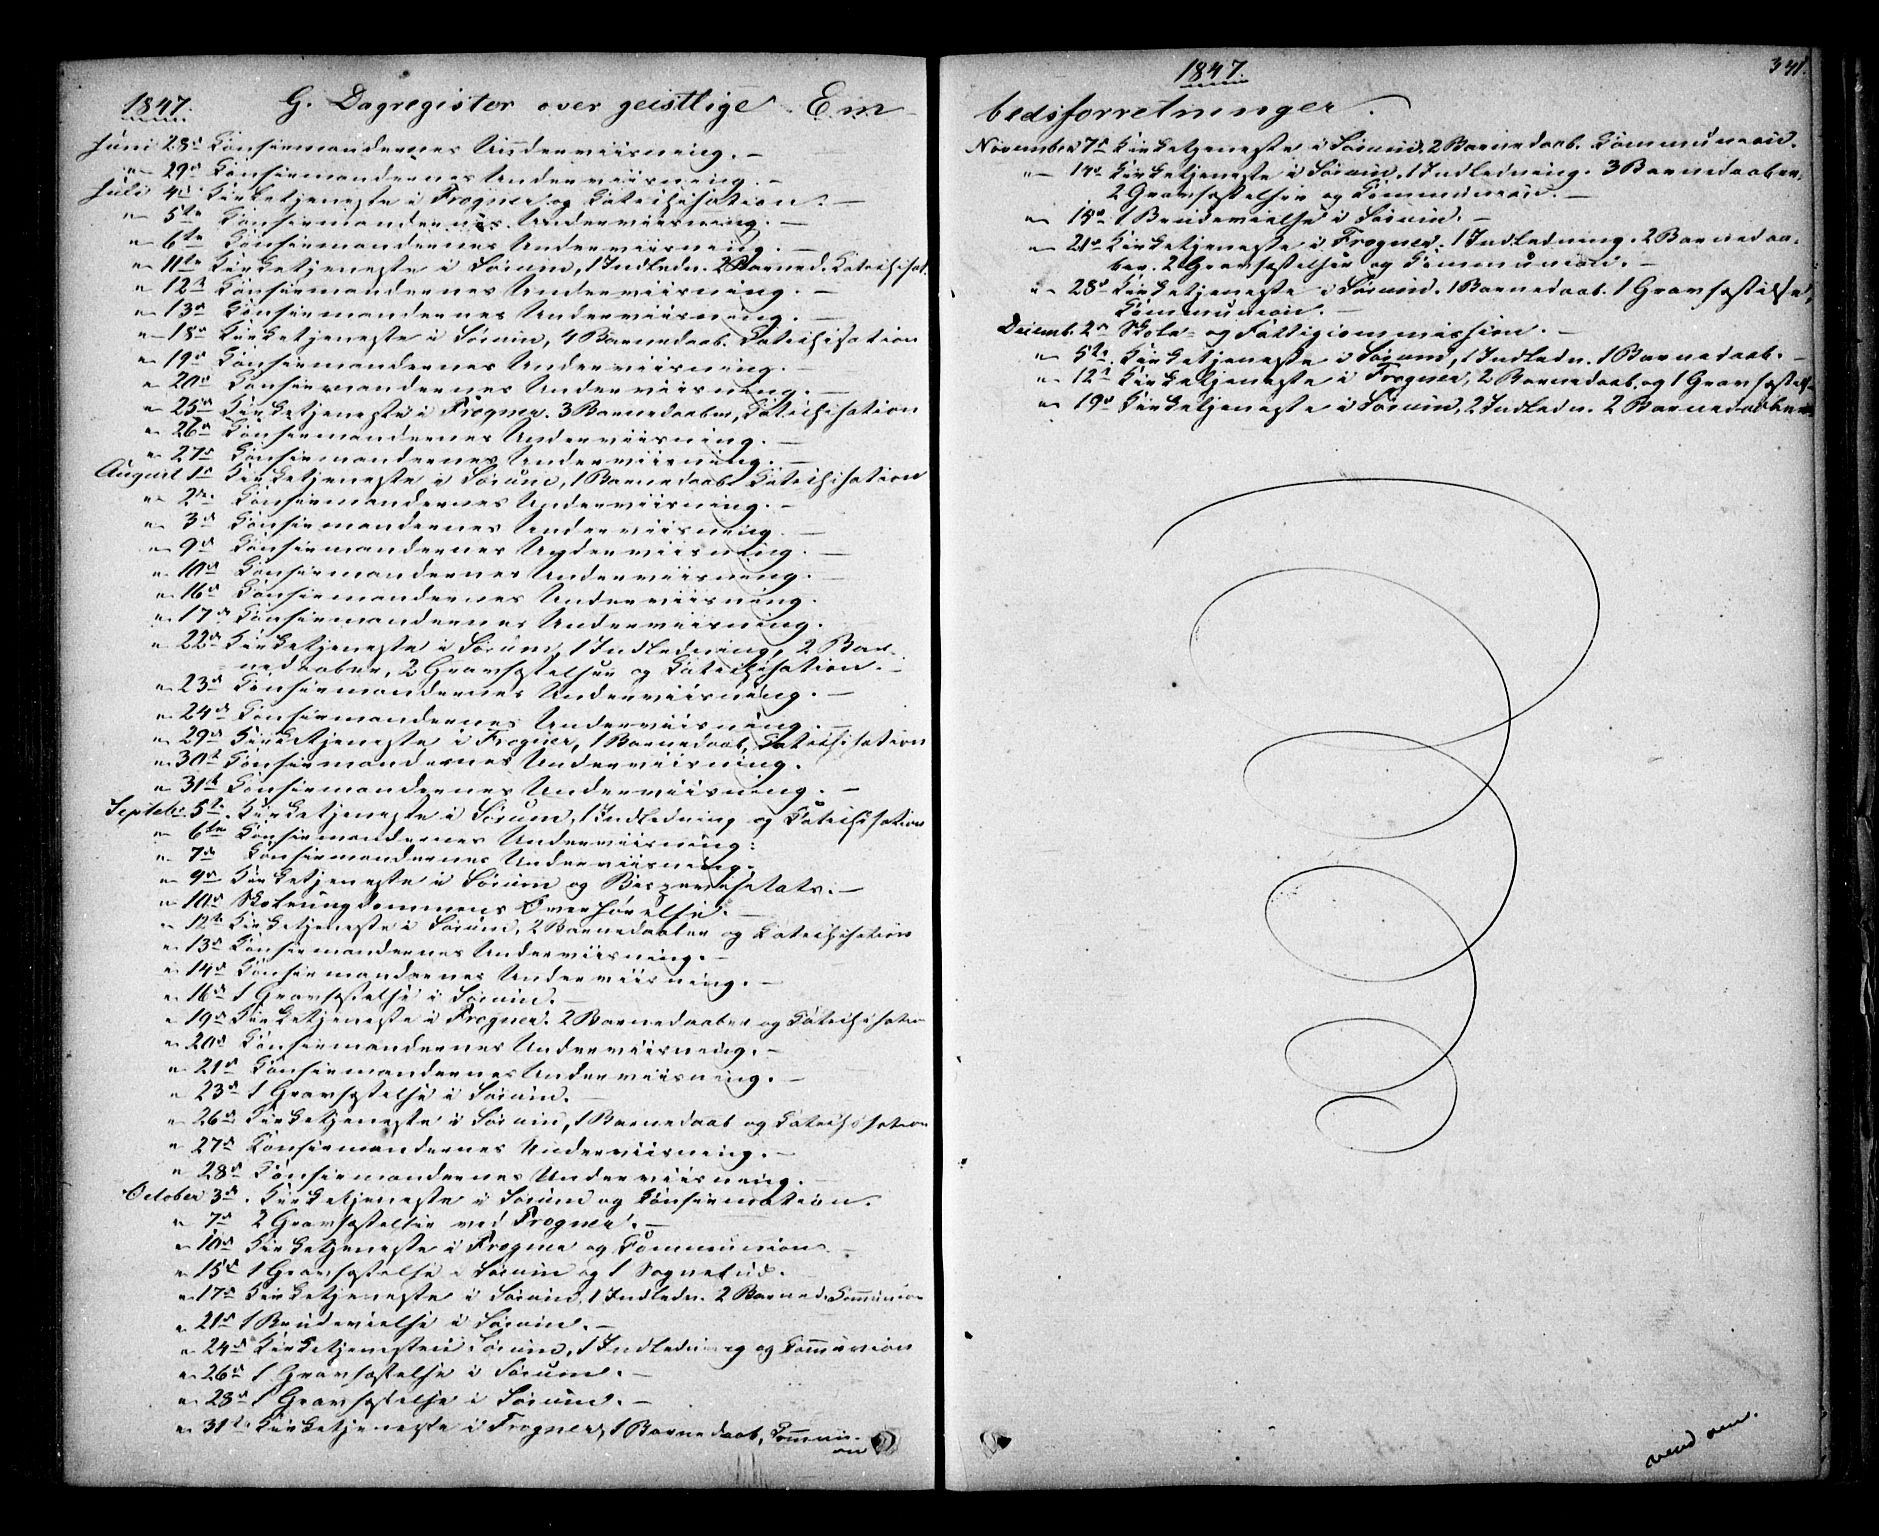 1847. G. Dagregister over geistlige Em-
Juni 28d Konfirmandernes Underviisning. —
" 29d Konfirmandernes Underviisning. —
Juli 4d Kirketjeneste i Frogner og Catechisation. —
" 5te Konfirmandernes Underviisning. —
" 6te Konfirmandernes Underviisning. —
" 11te Kirketjeneste i Sörum, 1 Indledn. 2 Barned. Catechisat.
" 12d Konfirmandernes Underviisning. —
" 13d Konfirmandernes Underviisning. —
" 18d Kirketjeneste i Sörum, 4 Barnedaab. Catechisation
" 19d Konfirmandernes Underviisning. —
" 20d Konfirmandernes Underviisning. —
" 25d Kirketjeneste i Frogner. 3 Barnedaaber, Catechisation
" 26d Konfirmandernes Underviisning. —
" 27d Konfirmandernes Underviisning. —
August 1d Kirketjeneste i Sörum, 1 Barnedaab Catechisation
" 2den Konfirmandernes Underviisning. —
" 3d Konfirmandernes Underviisning. —
" 9d Konfirmandernes Underviisning. —
" 10d Konfirmandernes Underviisning. —
" 16d Konfirmandernes Underviisning.
" 17d Konfirmandernes Underviisning.
" 22d Kirketjeneste i Sörum, 1 Indledning, 2 Bar-
nedaaber, 2 Gravfæstelser og Catechisation. —
" 23d Konfirmandernes Underviisning. —
" 24d Konfirmandernes Underviisning. —
" 29d Kirketjeneste i Frogner, 1 Barnedaab, Catechisation
" 30t Konfirmandernes Underviisning.
" 31te Konfirmandernes Underviisning. —
Septebr. 5te Kirketjeneste i Sörum, 1 Indledning og Catechisation
" 6te Konfirmandernes Underviisning.
" 7d Konfirmandernes Underviisning.
" 9d Kirketjeneste i Sörum og Bispevisetats. —
" 10d Skoleungdommens Overhörelse. —
" 12te Kirketjeneste i Sörum, 2 Barnedaaber og Catechisation
" 13d Konfirmandernes Underviisning. —
" 14d Konfirmandernes Underviisning. —
" 16d 1 Gravfæstelse i Sörum. —
" 19d Kirketjeneste i Frogner. 2 Barnedaaber og Catechisation
" 20d Konfirmandernes Underviisning. —
" 21d Konfirmandernes Underviisning. —
" 23d 1 Gravfæstelse i Sörum. —
" 26d Kirketjeneste i Sörum, 1 Barnedaab og Catechisation
" 27d Konfirmandernes Underviisning. —
" 28d Konfirmandernes Underviisning. —
October 3d. Kirketjeneste i Sörum og Confirmation.
" 7d 2 Gravfæstelser ved Frogner. —
" 10d Kirketjeneste i Frogner og Communion. —
" 15d 1 Gravfæstelse i Sörum og 1 Sognebud. —
" 17d Kirketjeneste i Sörum, 1 Indledn. 2 Barned. Communion
" 21d 1 Brudevielse i Sörum. —
" 24d Kirketjeneste i Sörum, 1 Indledning og Communion
" 26d 1 Gravfæstelse i Sörum. —
" 28d 1 Gravfæstelse i Sörum. —
" 31te Kirketjeneste i Frogner, 1 Barnedaab, Communi-
on
1847. 341.
bedsforretninger.
November 7d Kirketjeneste i Sörum, 2 Barnedaab. Communion.
" 14d Kirketjeneste i Sörum. 1 Indledning. 3 Barnedaaber,
2 Gravfæstelser og Communion. —
" 15d 1 Brudevielse i Sörum. —
" 21d Kirketjeneste i Frogner. 1 Indledning. 2 Barnedaa-
ber. 2 Gravfæstelser og Communion. —
" 28d Kirketjeneste i Sörum. 1 Barnedaab. 1 Gravfæstelse,
Communion. —
Decemb. 2d Skole- og Fattigcommission. —
" 5te Kirketjeneste i Sörum, 1 Indledn. 1 Barnedaab. —
" 12d Kirketjeneste i Frogner, 2 Barnedaab. og 1 Gravfæstelse
" 19d Kirketjeneste i Sörum, 2 Indledn. 2 Barnedaaber
vend om.